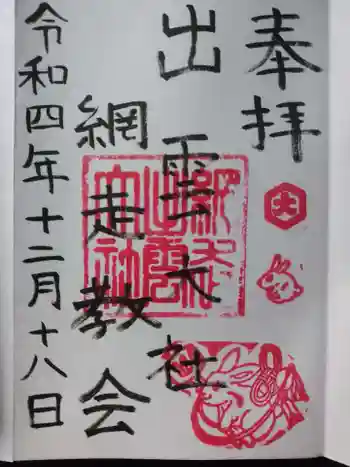 奉拝
出雲大社
網走教会
令和四年十二月十八日
大